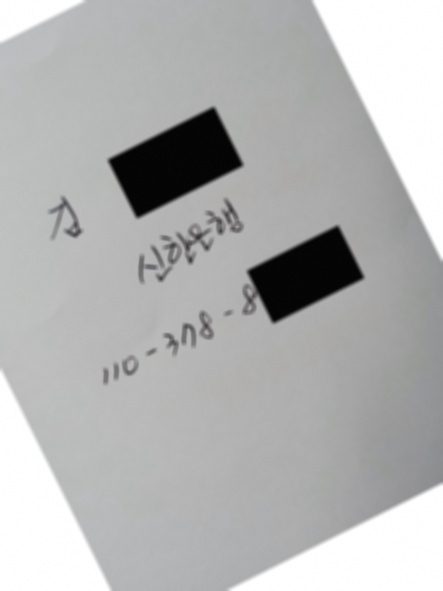 김
신한은행
110-378-8